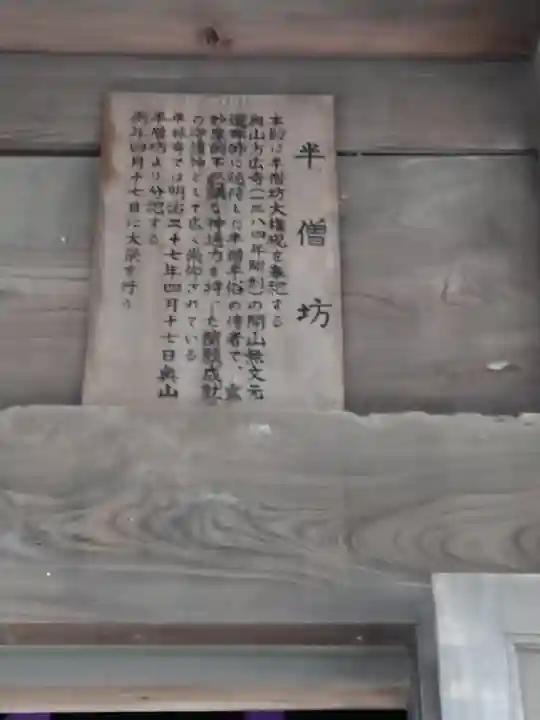 半僧坊
本殿は半僧坊大権現を奉祀する
奥山方広寺(一三八四年開創)の開山無文元
選禅師に随侍した半僧半俗の侍者で、玄
妙摩訶不思議な神通力を持った開願成就
の守護神として広く崇仰されている
半禅寺では明治三十七年四月十七日奥山
半僧坊より分祀する
例年四月十七日に大祭を行う